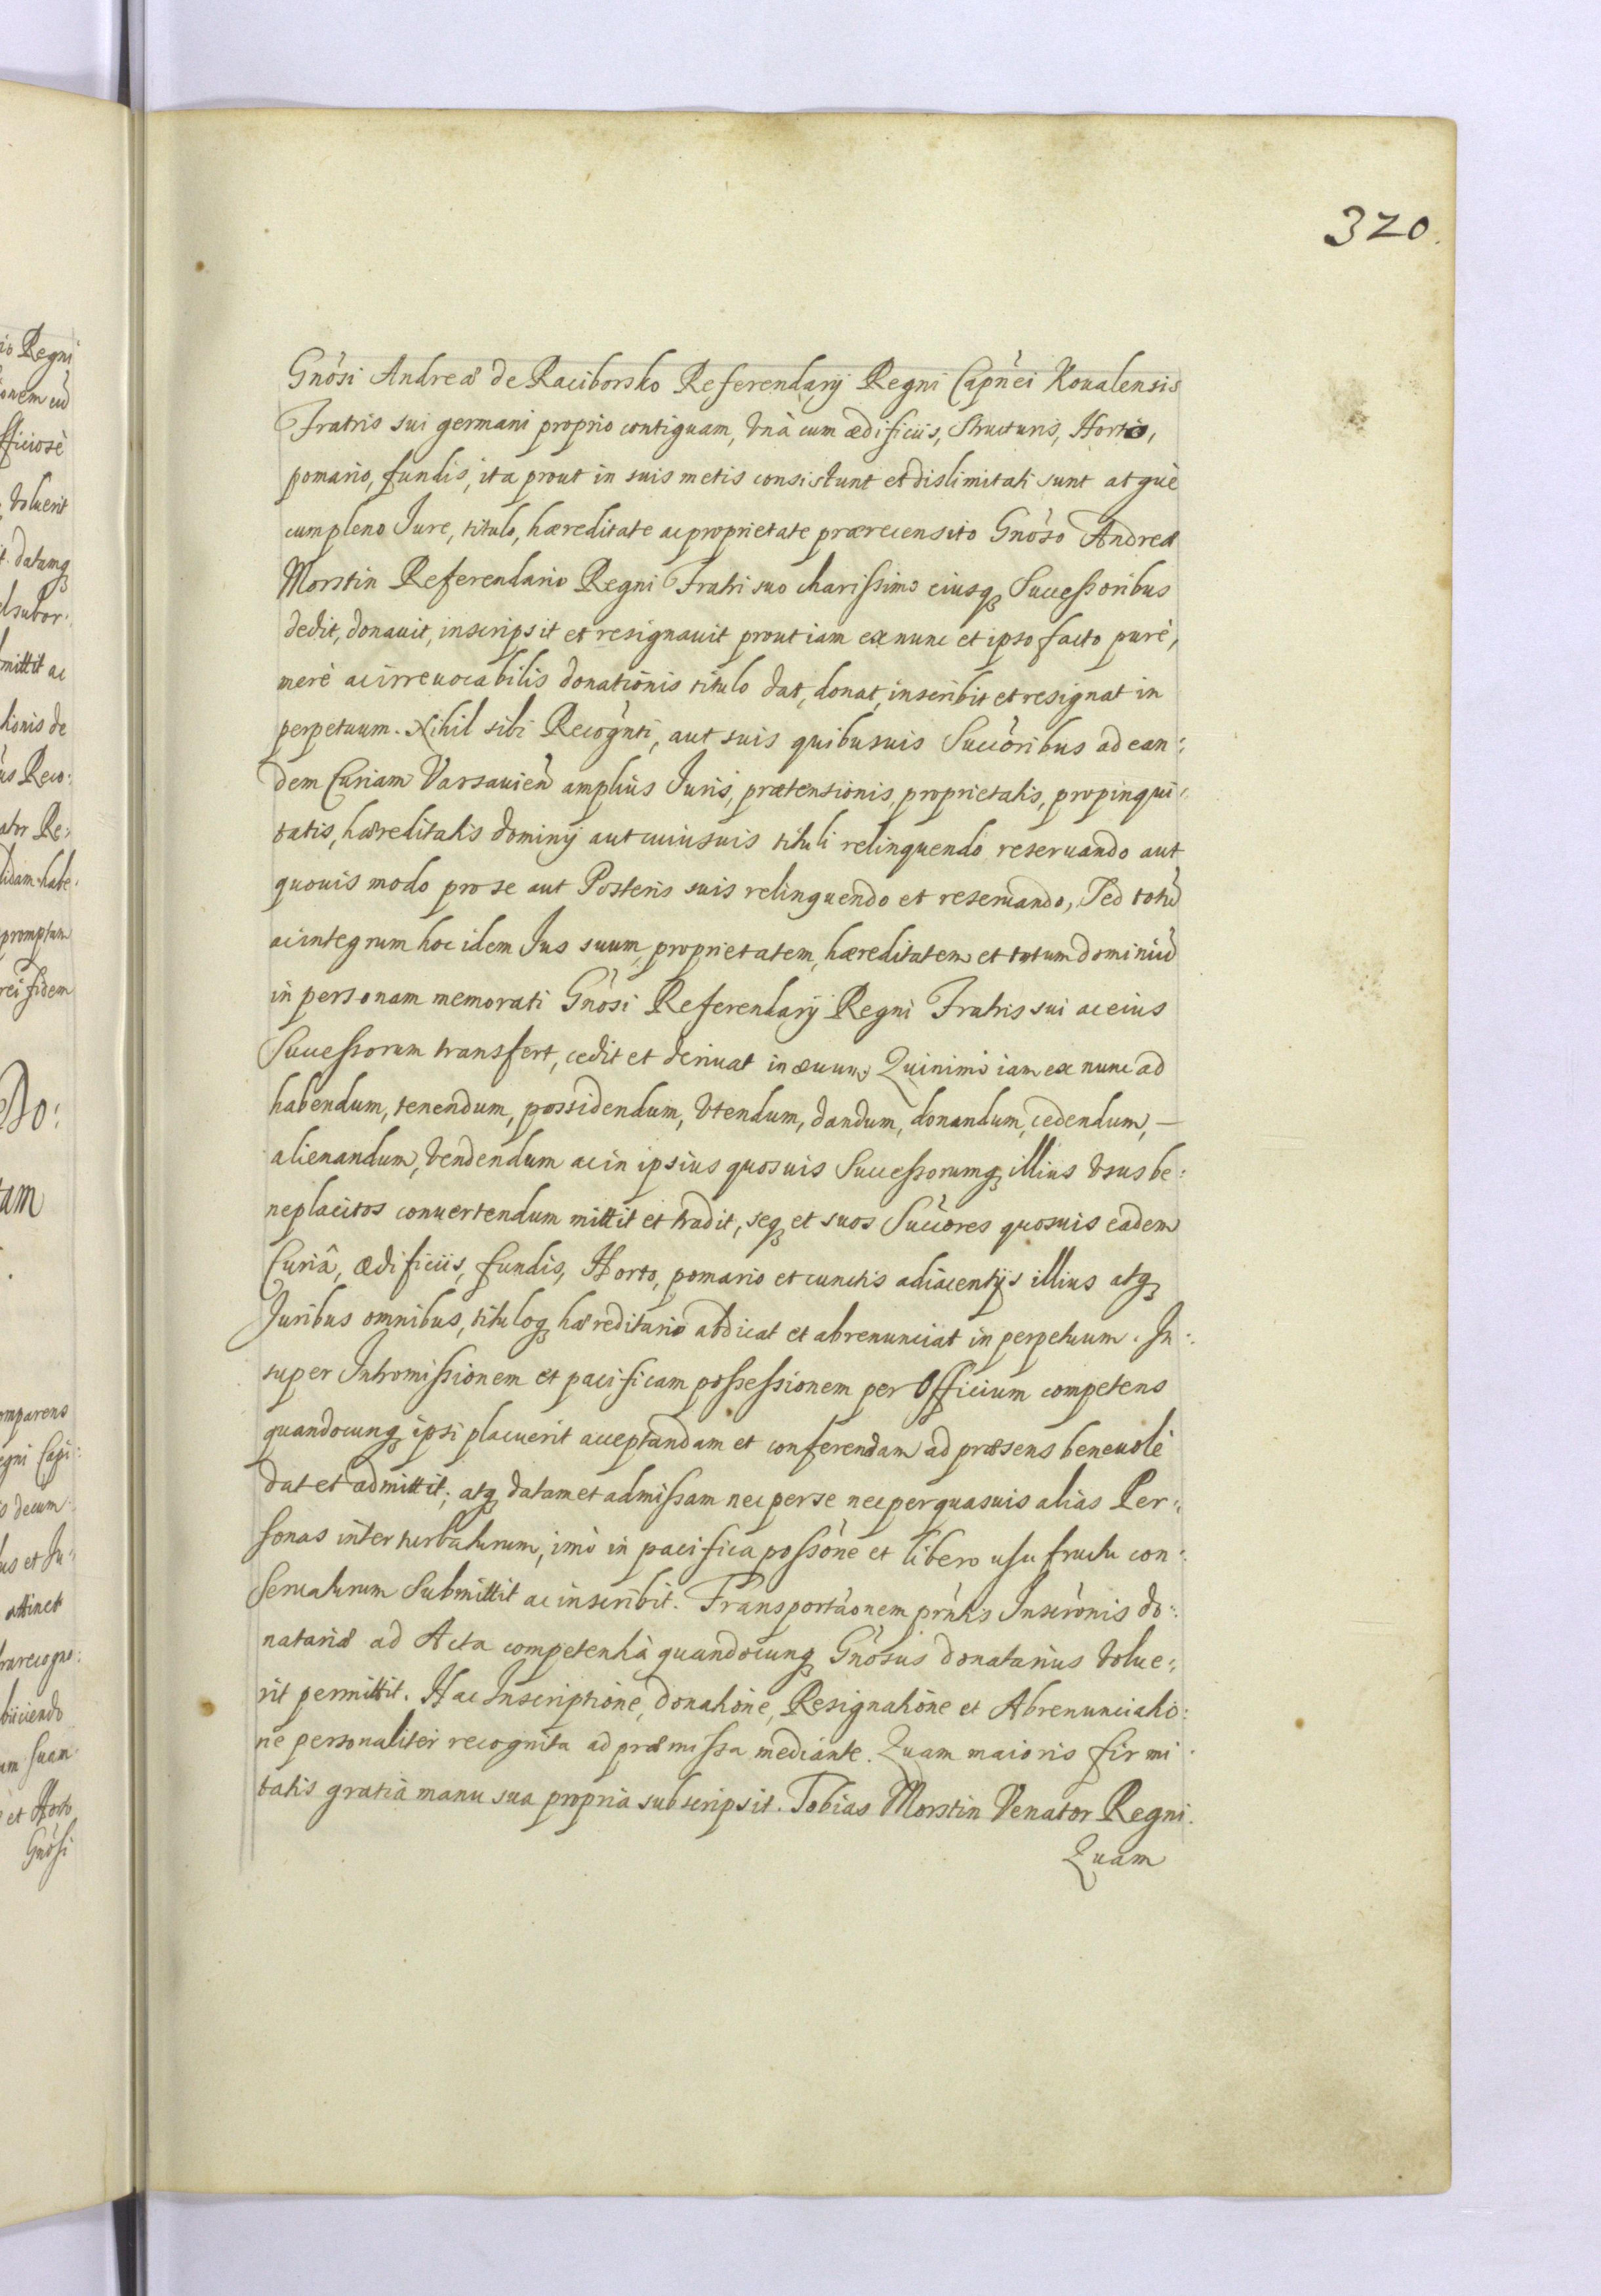 320.
Gnòsi Andreæ de Raciborsko Referendarij Regni Capnèi Koualensis
Fratris sui germani proprio contiguam, Vnà cum ædificiis, Structuris, Horto,
pomario, fundis, ita prout in suis metis consistunt et dislimitati sunt atquè
cum pleno Jure, titulo, hæreditate ac proprietate prærecensito Gnòso Andreæ
Morstin Referendario Regni Fratri suo charissimo eiusq3 Successoribus
dedit, donauit, inscripsit et resignauit prout iam ex nunc et ipso facto purè,
merè ac irreuocabilis donationis titulo dat, donat, inscribit et resignat in
perpetuum. Nihil sibi Recognti, aut suis quibusuis Succòribus ad ean:
dem Curiam Varsauien amplius Juris, prætensionis, proprietatis, propinqui:
tatis, hæreditatis dominij aut cuiusuis tituli relinquendo reseruando aut
quouis modo pro se aut Posteris suis relinquendo et reseruando, Sed totũ
ac integrum hoc idem Jus suum, proprietatem, hæreditatem et totum dominiũ
in personam memorati Gnòsi Referendarij Regni Fratris sui ac eius
Successorum transfert, cedit et deriuat in æuum. Quinimo iam ex nunc ad
habendum, tenendum, possidendum, Vtendum, dandum, donandum, cedendum, —
alienandum, Vendendum ac in ipsius quosuis Successorumq3 illius Vsus be:
neplacitos conuertendum mittit et tradit, seq3 et suos Succòres quosuis eadem
Curiâ, ædificiis, fundis, Horto, pomario et cunctis adiacentijs illius atq3
Juribus omnibus, tituloq3 hæreditario abdicat et abrenunciat in perpetuum. In:
super Intromissionem et pacificam possessionem per Officium competens
quandocunq3 ipsi placuerit acceptandam et conferendam ad præsens beneuolè
dat et admittit; atq3 datam et admissam nec per se nec per quasuis alias Per:
sonas interturbaturum, imò in pacifica possòne et libero usu fructu con:
seruaturum Submittit ac inscribit. Transportàonem prntis Inscrònis do:
natariæ ad Acta competentia quandocunq3 Gnòsus donatarius Volue:
rit permittit. Hac Inscriptione, donatione, Resignatione et Abrenunciatio:
ne personaliter recognita ad præmissa mediante. Quam maioris firmi:
tatis gratià manu sua propria subscripsit. Tobias Morstin Venator Regni.
Quam